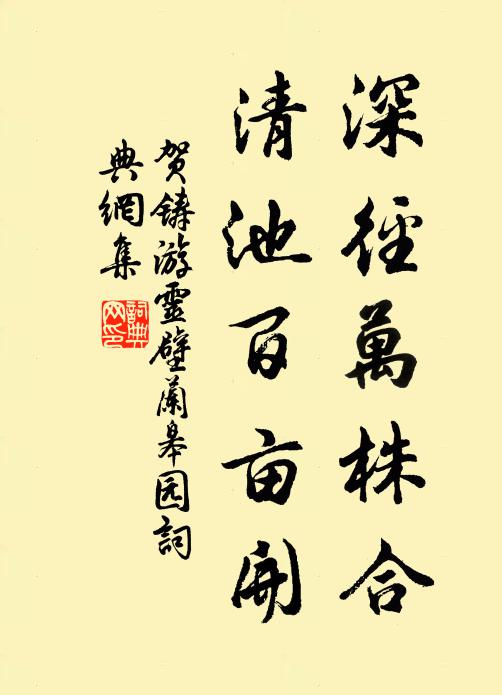 深徑萬株合
清池百亩開
贺鑄游靈壁蘭皋园詞
典網集
詞典网印